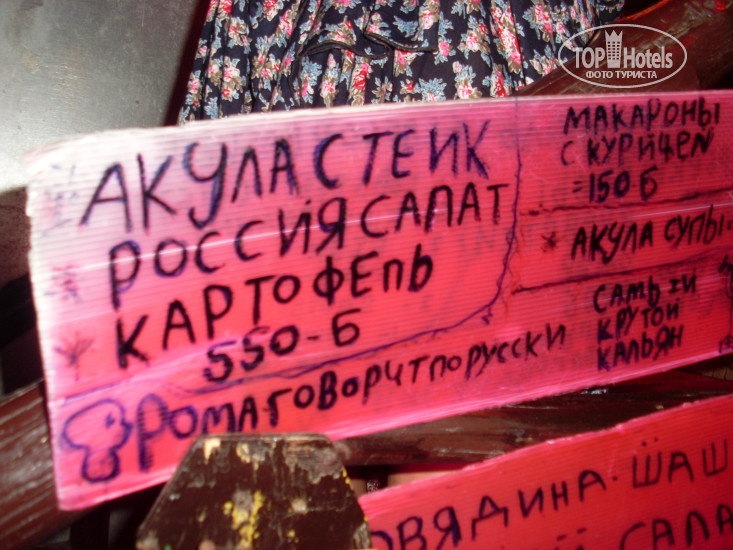 TOP Hotels
ФОТО ТУРИСТА
АКУЛА СТЕИК
РОССИЯ САЛАТ
КАРТОФЕЛЬ
550-Б
РОМА ГОВОРИТ ПО РУССКИ
МАКАРОНЫ
С КУРИЦЕЙ
=150-Б
* АКУЛА СУПЫ
САМЫЙ
КРУТОЙ
КАЛЬЯН
ОВЯДИНА-ШАШ
САЛА